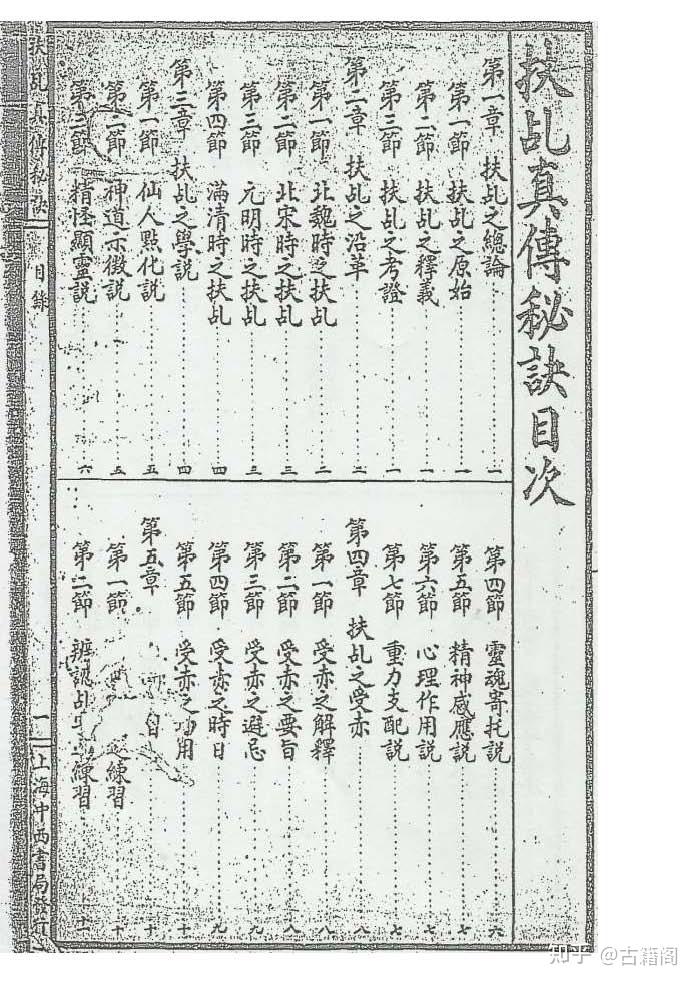 扶乩真傳秘訣目次
第一章 扶乩之總論……一
第一節 扶乩之原始……一
第二節 扶乩之釋義……一
第三節 扶乩之考證……一
第二章 扶乩之沿革……二
第一節 北魏時之扶乩……二
第二節 北宋時之扶乩……三
第三節 元明時之扶乩……三
第四節 滿清時之扶乩……四
第三章 扶乩之學說……四
第一節 仙人點化說……五
第二節 神道示徵說……五
第三節 精怪顯靈說……六
第四節 靈魂寄托說……六
第五節 精神感應說……七
第六節 心理作用說……七
第七節 重力支配說……七
第四章 扶乩之受赤……八
第一節 受赤之解釋……八
第二節 受赤之要旨……八
第三節 受赤之避忌……九
第四節 受赤之時日……九
第五節 受赤之用……十
第五章……十
第一節 練習……十
第二節 辨認乩 練習……十一
扶乩真傳秘訣 目錄 一 上海中西書局發行
知乎 @古籍阁